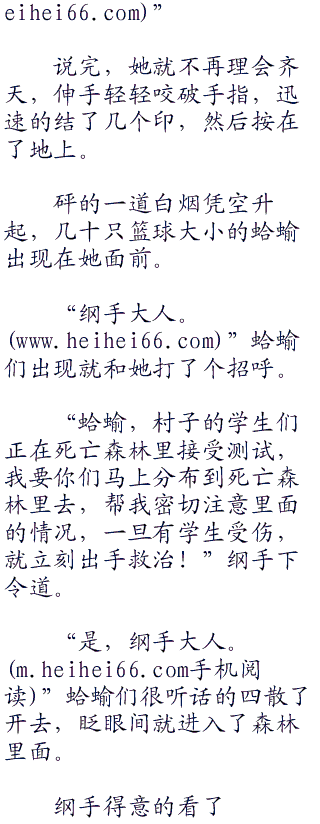 eihei66.com)”
说完，她就不再理会齐
天，伸手轻轻咬破手指，迅
速的结了几个印，然后按在
了地上。
砰的一道白烟凭空升
起，几十只篮球大小的蛤蝓
出现在她面前。
“纲手大人。
(www.heihei66.com)”蛤蝓
们出现就和她打了个招呼。
“蛤蝓，村子的学生们
正在死亡森林里接受测试，
我要你们马上分布到死亡森
林里去，帮我密切注意里面
的情况，一旦有学生受伤，
就立刻出手救治！”纲手下
令道。
“是，纲手大人。
(m.heihei66.com手机阅
读)”蛤蝓们很听话的四散了
开去，眨眼间就进入了森林
里面。
纲手得意的看了